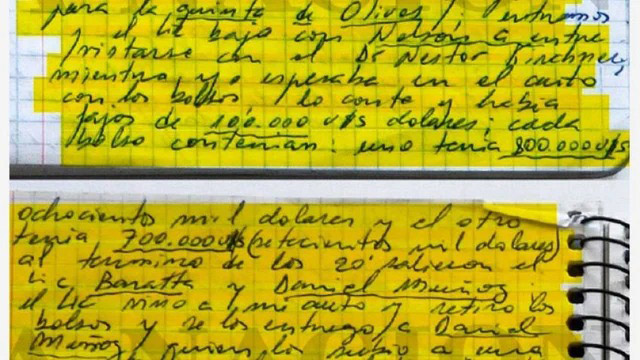 para la quinta de Olivos / : entramos
y el Lic bajo con Nelson a entre
vistarse con el Dr Nestor Kirchner,
mientras yo esperaba en el auto
con los bolsos, lo conte y habia
fajos de 100.000 u$s dolares; cada
bolso contenian: uno tenia 800.000 u$s
ochocientos mil dolares y el otro
tenia 700.000 u$s (setecientos mil dolares)
al termino de los 20' salieron el
Lic Baratta y Daniel Muñoz
el Lic vino a mi auto y retiro los
bolsos y se los entrego a Daniel
Muñoz / quien los subio a una